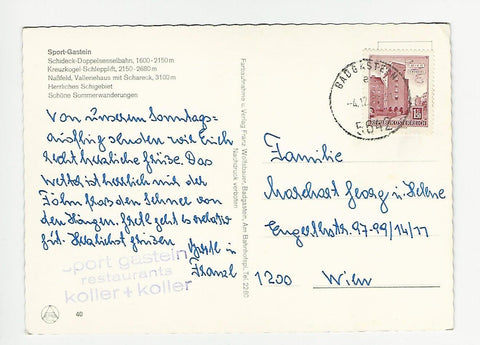 Sport-Gastein
Schideck-Doppelsesselbahn, 1600-2150 m
Kreuzkogel-Schlepplift, 2150-2680 m
Naßfeld, Valeriehaus mit Schareck, 3100 m
Herrliches Schigebiet
Schöne Sommerwanderungen
Von unserem Sonntags-
ausflug senden wir Euch
recht herzliche Grüße. Das
Wetter ist herrlich nur der
Föhn den Schnee von
den Hängen. geht es
gut. Herzlichst grüßen
Franzl
sport gastein
restaurants
koller + koller
40
Farbaufnahme u. Verlag Franz Wolfsbauer, Badgastein, Am Bahnhofspl. Tel. 2280
Nachdruck verboten
BADGASTEIN
5642
REPUBLIK ÖSTERREICH
Familie
Marchart Georg u. Helene
Engerthstr. 97-99/14/11
1200 Wien